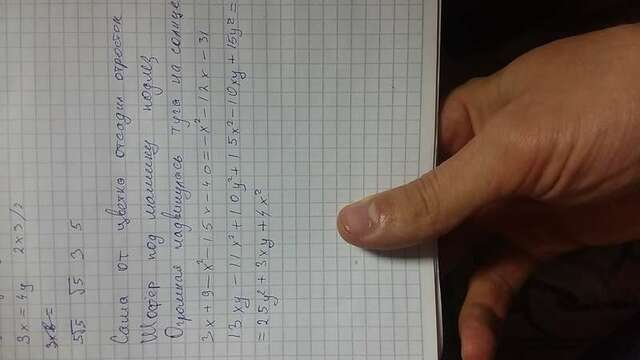 3x = 4y 2x3/2
5√5 √5 3 5
Саша от цветка отсадил отросток
Шофер под машину подлез
Огромная надвинулась туча на солнце
3x + 9 - x² - 15x - 40 = -x² - 12x - 31
13xy - 11x² + 10y² + 15x² - 10xy + 15y² =
= 25y² + 3xy + 4x²